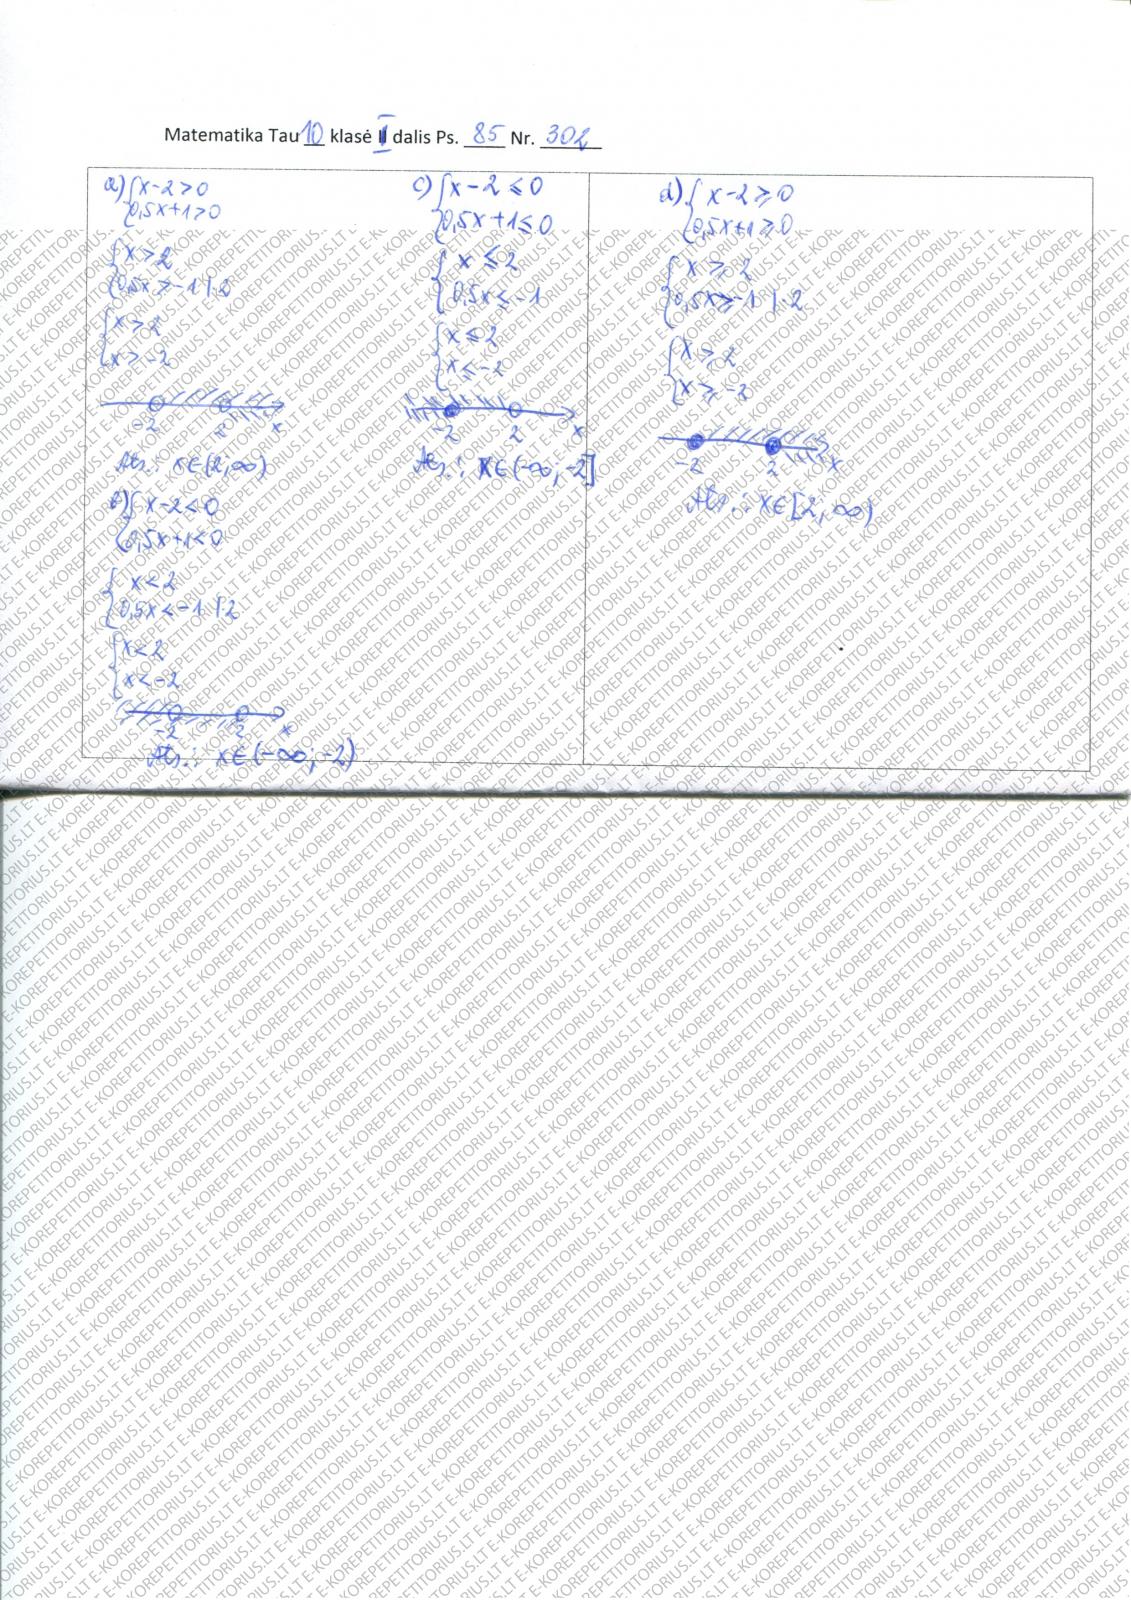 Matematika Tau 10 klasė I dalis Ps. 85 Nr. 302
a) { x-2>0
0,5x+1>0
{ x>2
0,5x>-1 |·2
{ x>2
x>-2
-2 2 x
Ats.: x∈(2;∞)
b) { x-2<0
0,5x+1<0
{ x<2
0,5x<-1 |·2
{ x<2
x<-2
-2 2 x
Ats.: x∈(-∞;-2)
c) { x-2≤0
0,5x+1≤0
{ x≤2
0,5x≤-1
{ x≤2
x≤-2
-2 2 x
Ats.: x∈(-∞;-2]
d) { x-2≥0
0,5x+1≥0
{ x≥2
0,5x≥-1 |·2
{ x≥2
x≥-2
-2 2 x
Ats.: x∈[2;∞)
E-KOREPETITORIUS.LT